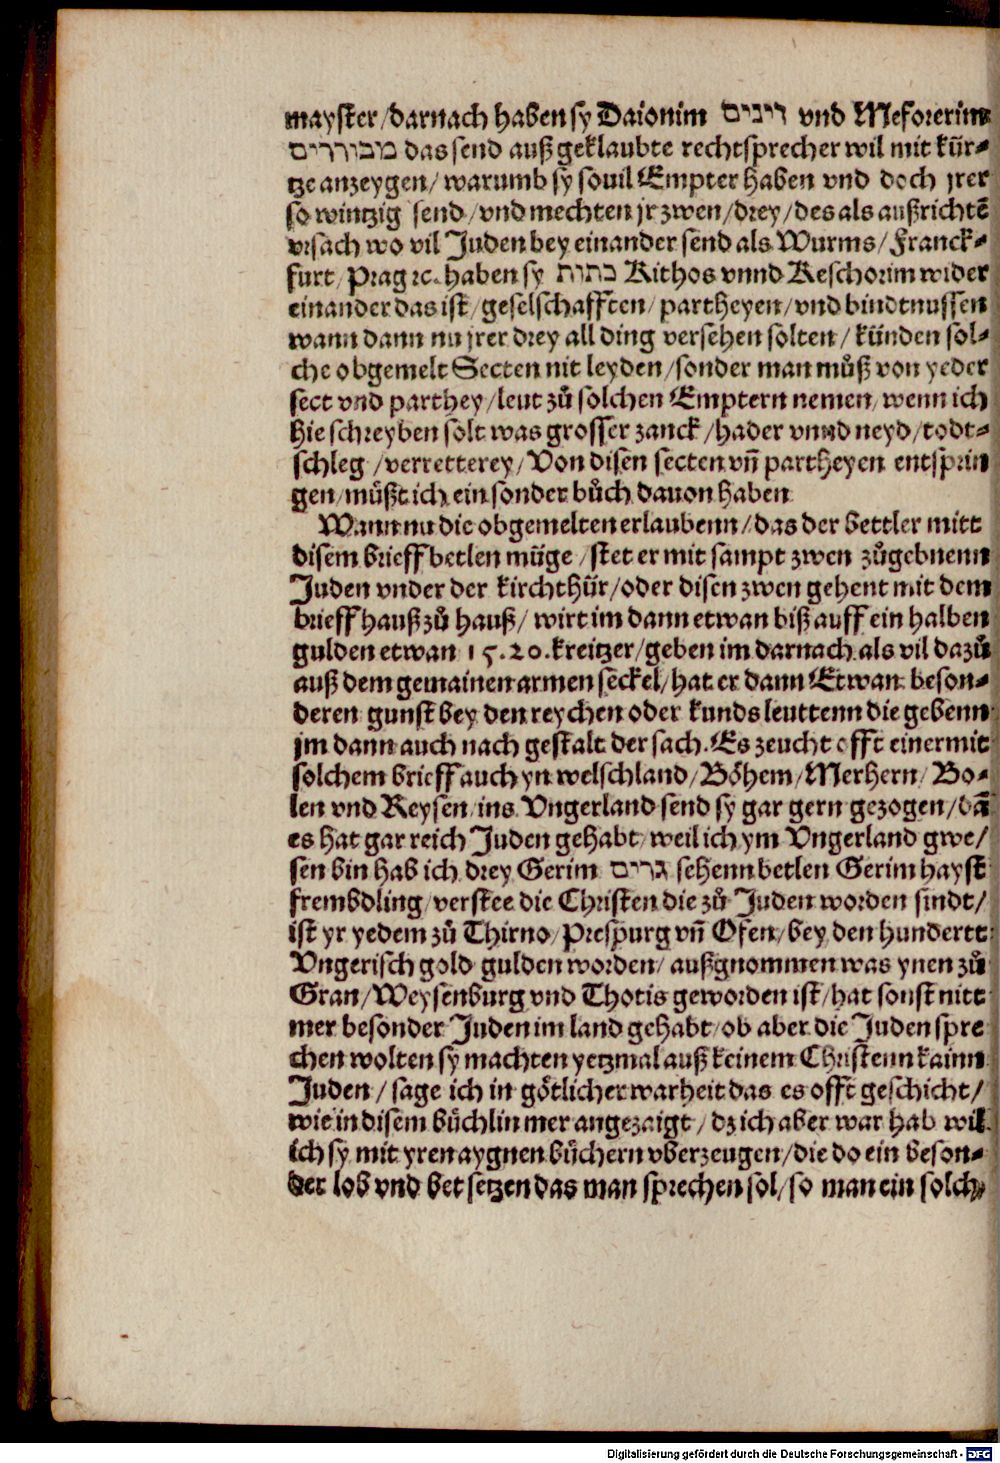 mayster/darnach haben sy Daionim דיינים vnd Meforerim
מבוררים das send auß geklaubte rechtsprecher wil mit kür-
tze anzeygen/ warumb sy souil Empter haben vnd doch jrer
so wintzig send/vnd mechten jr zwen/drey/des als außrichtē
vrsach wo vil Juden bey einander send als Wurms/Franck-
furt/Prag ꝛc. haben sy כתות Kithos vnnd Keschorim wider
einander das ist/geselschafften/partheyen/vnd bindtnussen
wann dann nu jrer drey all ding versehen solten/künden sol-
che obgemelt Secten nit leyden/sonder man můß von yeder
sect vnd parthey/leut zů solchen Emptern nemen/wenn ich
hie schreyben solt was grosser zanck/hader vnnd neyd/todt-
schleg/verretterey/Von disen secten vñ partheyen entsprin
gen/müßt ich ein sonder bůch dauon haben
Wann nu die obgemelten erlaubenn/das der bettler mitt
disem brieff betlen müge/stet er mit sampt zwen zůgebnenn
Juden vnder der kirchthür/oder disen zwen gehent mit dem
brieff hauß zů hauß/ wirt im dann etwan biß auff ein halben
gulden etwan 15.20.kreitzer/geben im darnach als vil dazů
auß dem gemainen armen seckel/hat er dann Etwan beson-
deren gunst bey den reychen oder kunds leuttenn die gebenn
jm dann auch nach gestalt der sach.Es zeucht offt einer mit
solchem brieff auch yn welschland/Böhem/Merhern/Bo-
len vnd Reysen/ins Vngerland send sy gar gern gezogen/dā
es hat gar reich Juden gehabt/weil ich ym Vngerland gwe/
sen bin hab ich drey Gerim גרים sehenn betlen Gerim hayst
frembdling/verstee die Christen die zů Juden worden sindt/
ist yr yedem zů Thirno/Prespurg vñ Ofen/bey den hundertt
Vngerisch gold gulden worden/außgnommen was ynen zů
Gran/Weysenburg vnd Thotis geworden ist/hat sonst nitt
mer besonder Juden im land gehabt/ob aber die Juden spre
chen wolten sy machten yetzmal auß keinem Christenn kainn
Juden/sage ich in götlicher warheit das es offt geschicht/
wie in disem büchlin mer angezaigt/dz ich aber war hab wil
ich sy mit yren aygnen büchern vberzeugen/die do ein beson-
der lob vnd bet setzen das man sprechen sol/so man ein solch
Digitalisierung gefördert durch die Deutsche Forschungsgemeinschaft - DFG